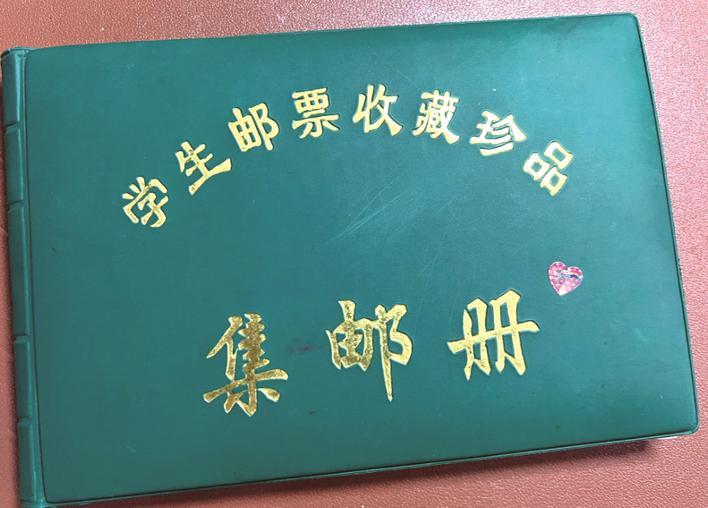 学生邮票收藏珍品
集邮册